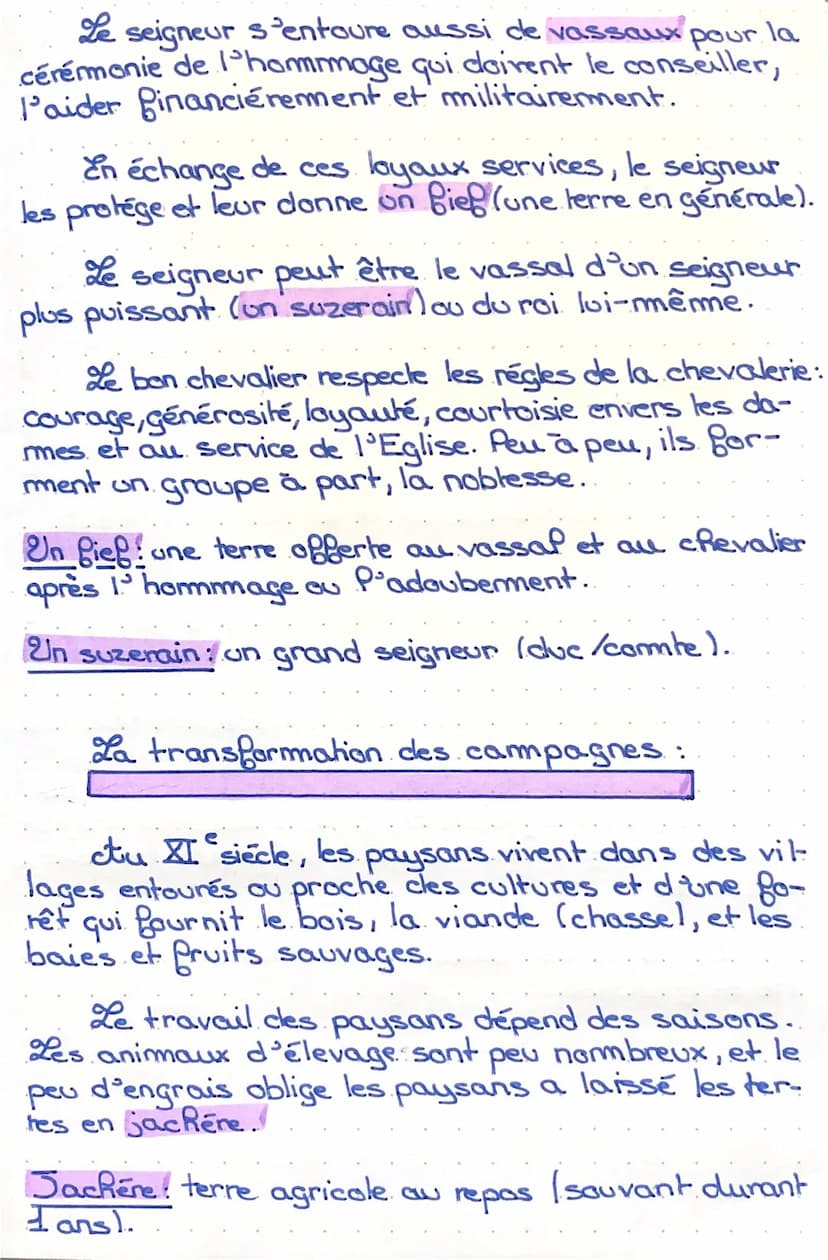 Le seigneur s'entoure aussi de vassaux pour la
cérémonie de l'hommage qui doivent le conseiller,
l'aider financiérement et militairement.
En échange de ces loyaux services, le seigneur
les protége et leur donne un fief (une terre en générale).
Le seigneur peut être le vassal d'un seigneur
plus puissant (un suzerain) ou du roi lui-même.
Le bon chevalier respecte les régles de la chevalerie :
courage, générosité, loyauté, courtoisie envers les da-
mes et au service de l'Eglise. Peu à peu, ils for-
ment un groupe à part, la noblesse.
Un fief : une terre offerte au vassal et au chevalier
après l'hommage ou l'adoubement.
Un suzerain : un grand seigneur (duc/comte).
La transformation des campagnes :
Au XIe siécle, les paysans vivent dans des vil-
lages entourés ou proche des cultures et d'une fo-
rêt qui fournit le bois, la viande (chasse), et les
baies et fruits sauvages.
Le travail des paysans dépend des saisons.
Les animaux d'élevage sont peu nombreux, et le
peu d'engrais oblige les paysans a laissé les ter-
res en jachére.
Jachére : terre agricole au repos (souvant durant
1 ans).